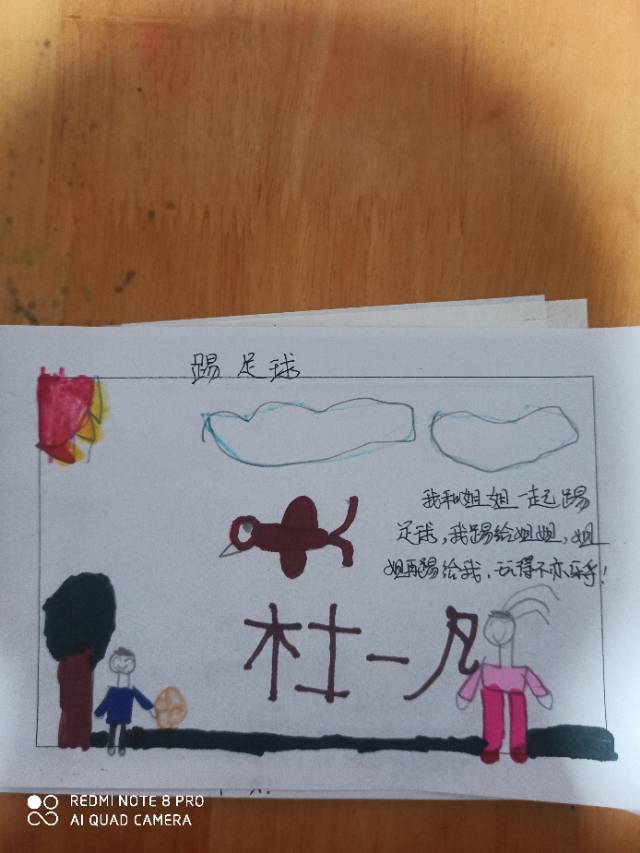 踢足球
我和姐姐一起踢
足球,我踢给姐姐,姐
姐再踢给我,玩得不亦乐乎!
杜一凡
REDMI NOTE 8 PRO
AI QUAD CAMERA